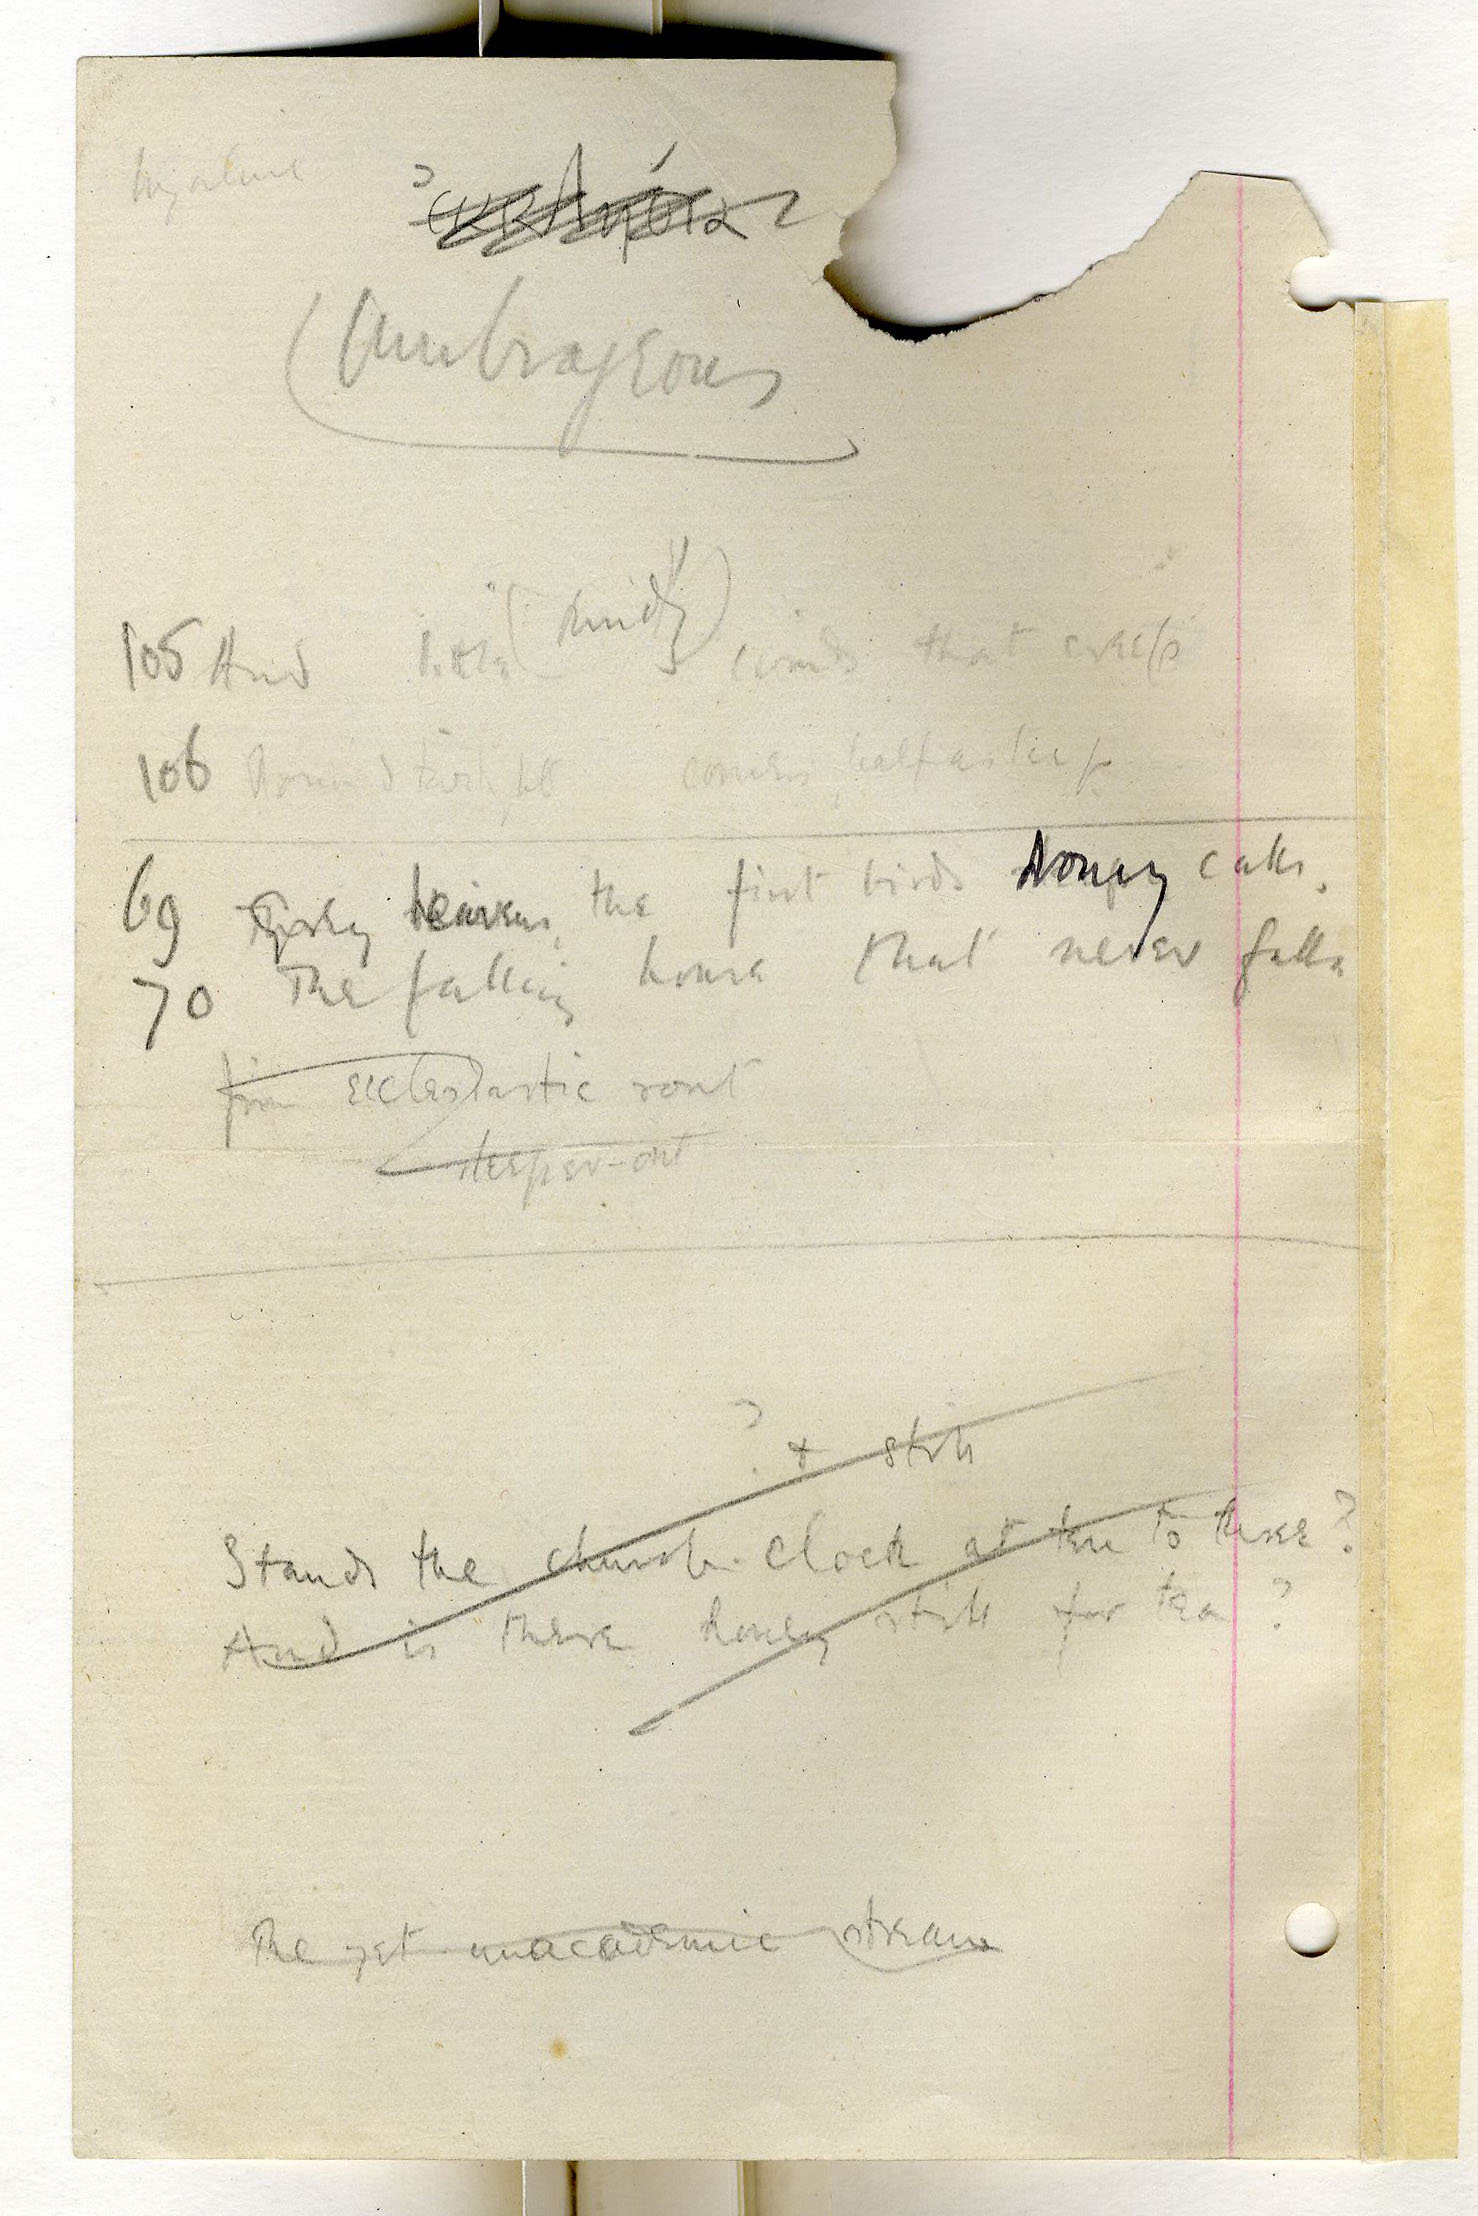 hyaline
(Umbrageous
105 And little (kindly) winds that creep
106 Round twilight corners, half asleep
69 Grey heavens, the first birds drowsy calls,
70 The falling house that never falls
from ecclesiastic rout
sleeper-out
? & still
Stands the church-clock at ten to three?
And is there honey still for tea?
The yet unacademic stream